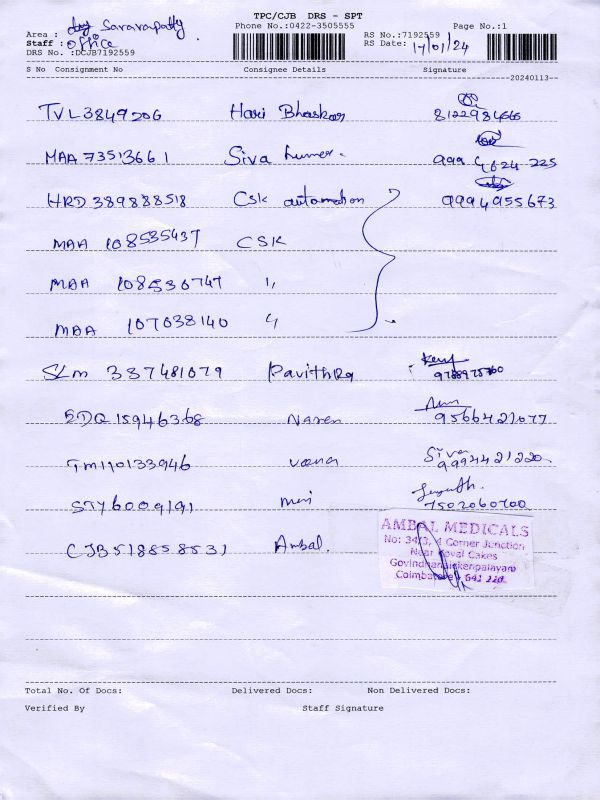 TPC/CJB DRS - SPT
Area : Saravapatty
Phone No.:0422-3505555
RS No.:7192559
Page No.:1
Staff : office
RS Date: 17/01/24
DRS No. :DCJB7192559
S No Consignment No Consignee Details Signature
20240113
TVL3849206 Hari Bhaskar 8122984666
MAA 73513661 Siva kumar. 999 4624 225
HRD 389888518 Csk automation 9994955673
MAA 108535437 CSK
MAA 108536747 "
MAA 107038140 "
SLM 337481079 Pavithra
EDQ 15946368 Naren 9566421077
TM110133946 Siva 9994421220
STY6009191 7502060700
CJB518858531 Ambal.
AMBAL MEDICALS
No: 34/3, 4 Corner Junction
Near Koval Cakes
Govindhanaickenpalayam
Coimbatore - 641
Total No. Of Docs: Delivered Docs: Non Delivered Docs:
Verified By Staff Signature